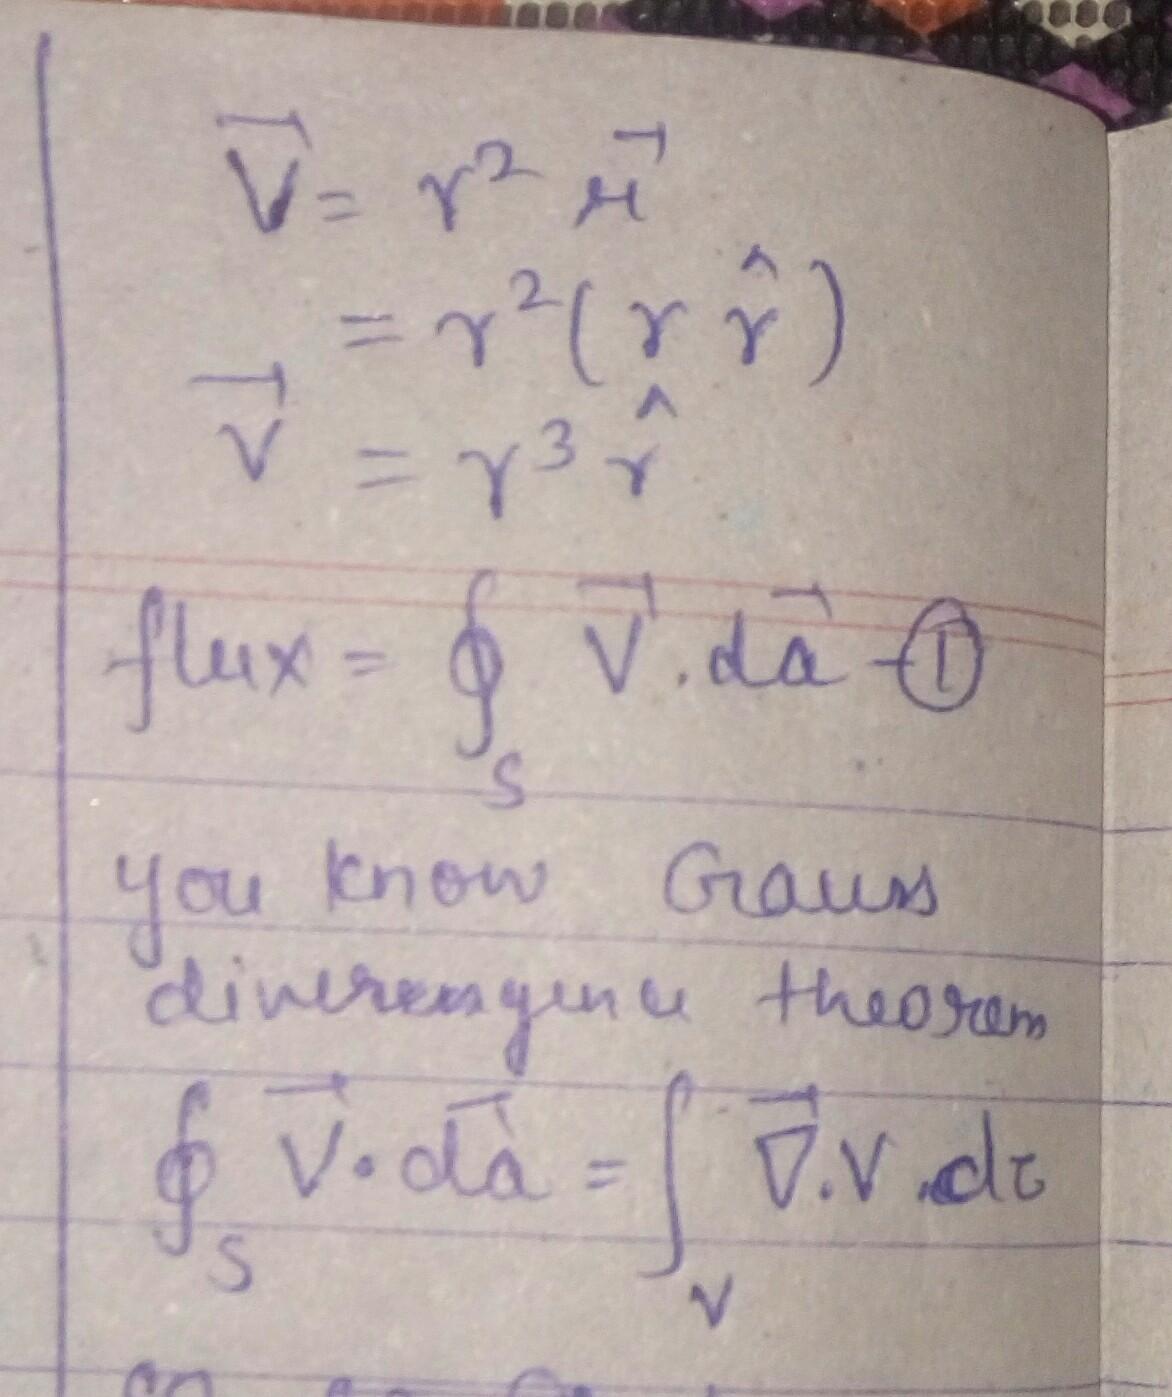 V⃗ = r² r⃗
= r² ( r r̂ )
V⃗ = r³ r̂
flux = ∮_S V⃗ . da⃗ - ①
you know Gauss
diverengence theorem
∮_S V⃗ . da⃗ = ∫_V ∇⃗ . V . dτ